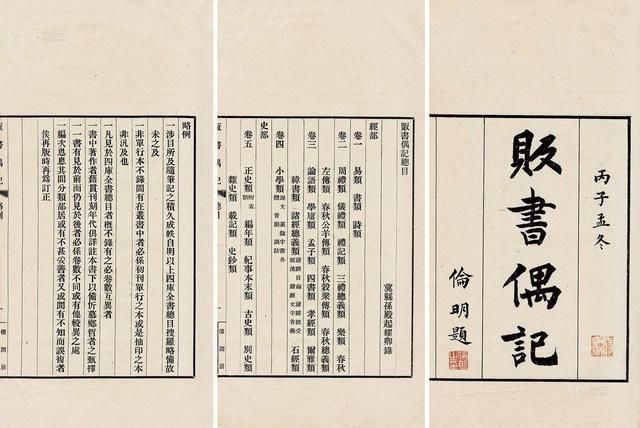 丙子孟冬
販書偶記
倫明題
販書偶記總目
冀縣孫殿起耀卿錄
經部
卷一 易類 書類 詩類
卷二 周禮類 儀禮類 禮記類 三禮總義類 樂類 春秋
左傳類 春秋公羊傳類 春秋穀梁傳類 春秋總義類
卷三 論語類 學庸類 孟子類 四書類 孝經類 爾雅類
緯書類 諸經總義類 石經類
卷四 小學類
史部
卷五 正史類 編年類 紀事本末類 古史類 別史類
雜史類 載記類 史鈔類
略例
一涉目所及隨筆記之積久成帙自明以上四庫全書總目搜羅略備故
未之及
一非單行本不錄間有在叢書中者必係初刊單行之本或是抽印之本
非汎及也
一凡見於四庫全書總目者概不錄有之必卷數互異者
一書中著作者籍貫刊刻年代俱詳註本書下以備忻慕鄉哲者之甄擇
一一書有見於前而仍見於後者必係卷數不同或有他較異之處
一編次怱恖其間分類部居或有不甚妥善者又或間有不知而誤複者
俟再版時再為訂正